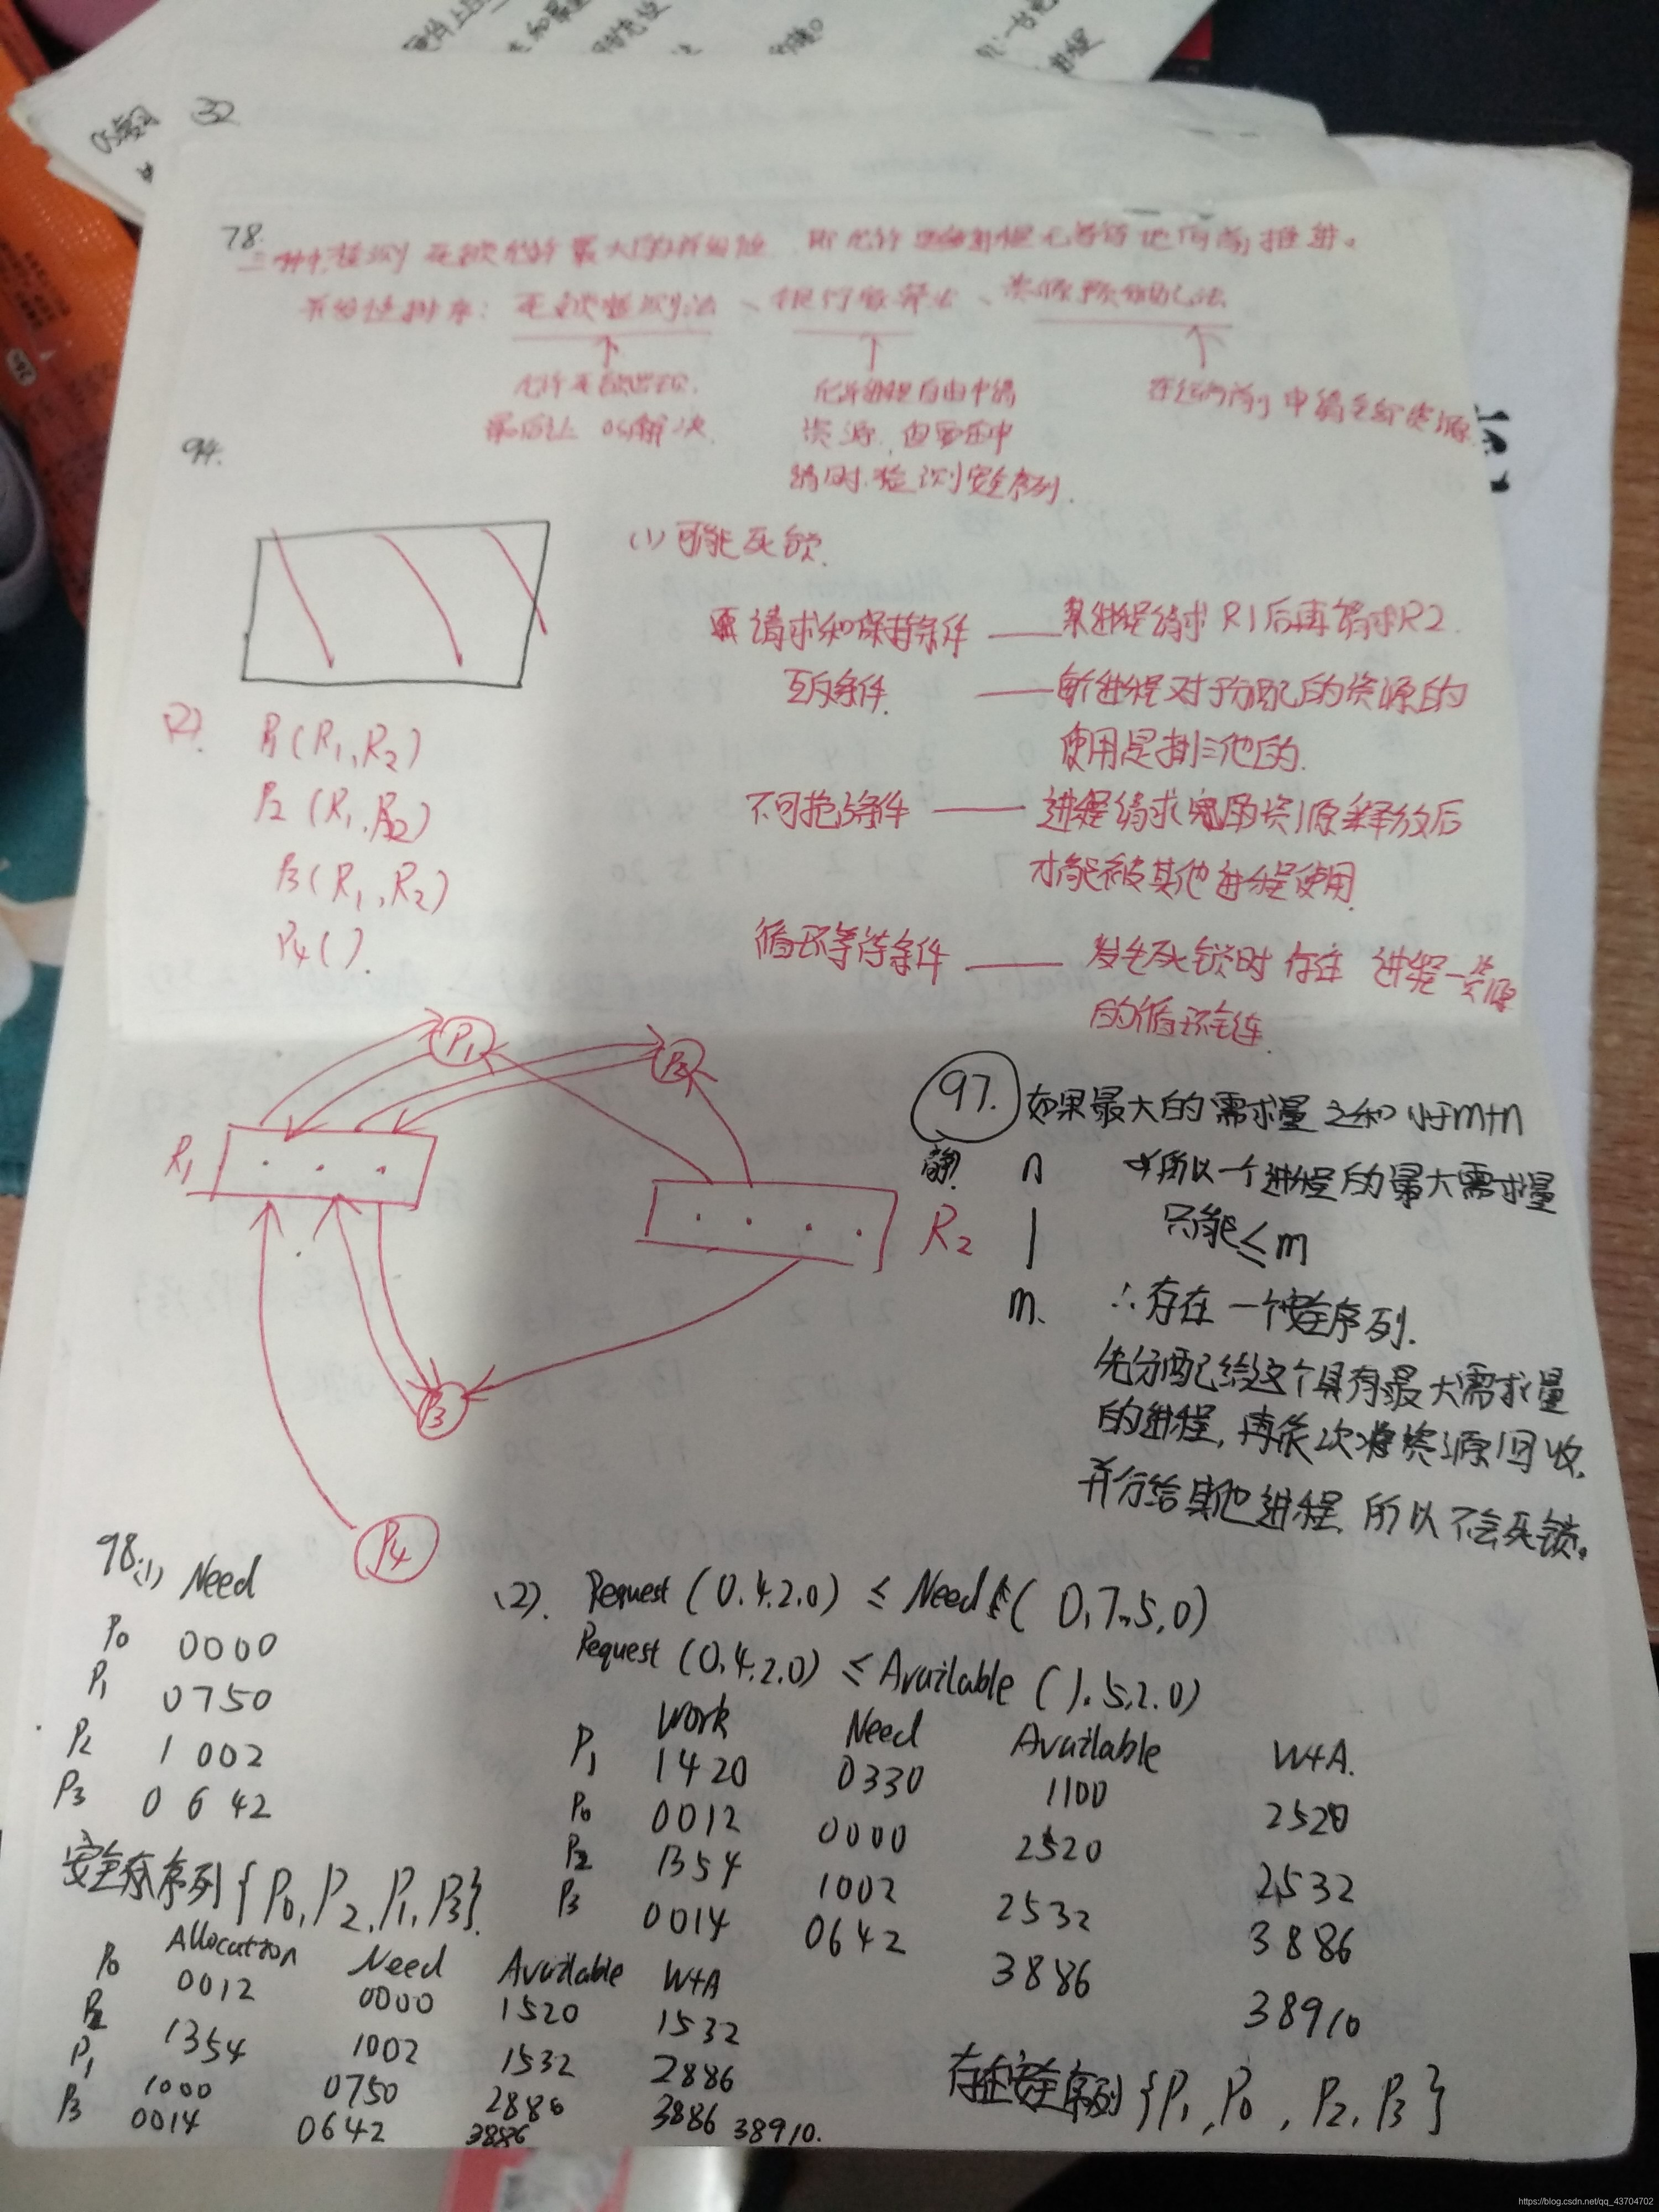 32
OS复习
78.
三种检测死锁允许最大的并发性, 即允许进程无等待地向前推进。
并发性排序: 死锁检测法、银行家算法、资源预分配法
允许死锁出现.
最后让 OS解决.
允许进程自由申请
资源, 但要在申
请时检测安全序列.
在运行前申请全部资源.
94.
(1) 可能死锁.
请求和保持条件 —— 某进程请求 R1后再请求R2.
互斥条件. —— 每个进程对于分配的资源的
使用是排它他的.
不可抢占条件 —— 进程请求 资源释放后
才能被其他进程使用.
循环等待条件 —— 发生死锁时存在 进程-资源
的循环链.
(2).
P1(R1,R2)
P2(R1,R2)
P3(R1,R2)
P4( ).
P1
P2
R1
R2
P3
P4
97. 如果最大的需求量之和小于m+n
n
m.
所以一个进程的最大需求量
只能≤m
∴存在一个安全序列.
先分配给这个具有最大需求量
的进程, 再依次将资源回收,
并分给其他进程, 所以不会死锁。
98.(1) Need
P0 0000
P1 0750
P2 1002
P3 0642
安全序列{P0,P2,P1,P3}.
Allocation Need Available W+A
P0 0012 0000 1520 1532
P2 1354 1002 1532 2886
P1 1000 0750 2886 3886
P3 0014 0642 3886 38910.
(2). Request (0.4.2.0) ≤ Need (0,7,5,0)
Request (0.4.2.0) ≤ Available (1.5.2.0)
Work Need Available W+A.
P1 1420 0330 1100 2520
P0 0012 0000 2520 2532
P2 1354 1002 2532 3886
P3 0014 0642 3886 38910
存在安全序列{P1,P0,P2,P3}
https://blog.csdn.net/qq_43704702